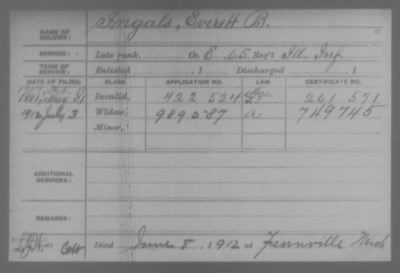 NAME OF SOLDIER: Ingals, Everett B.
SERVICE: Late rank, Co. E, 65 Reg't Ill. Inf.
TERM OF SERVICE: Enlisted , 1 Discharged , 1
DATE OF FILING. CLASS. APPLICATION NO. LAW. CERTIFICATE NO.
Invalid, 422 524 261 571
1912 July 3 Widow, 989587 a. 749745
Minor,
ADDITIONAL SERVICES:
REMARKS:
Died June 8, 1912 at Fennville Mich